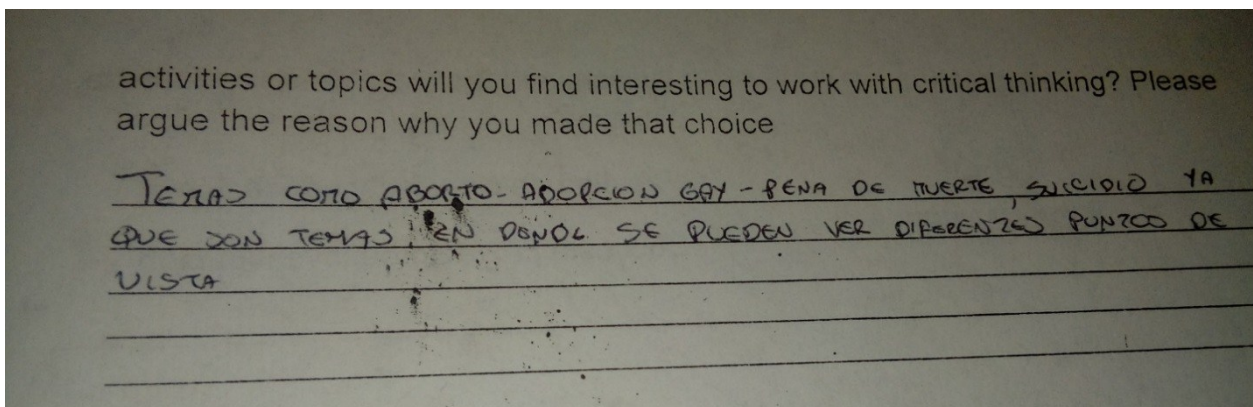 activities or topics will you find interesting to work with critical thinking? Please
argue the reason why you made that choice
TEMAS COMO ABORTO - ADOPCION GAY - PENA DE MUERTE, SUICIDIO YA
QUE SON TEMAS, EN DONDE SE PUEDEN VER DIFERENTES PUNTOS DE
VISTA